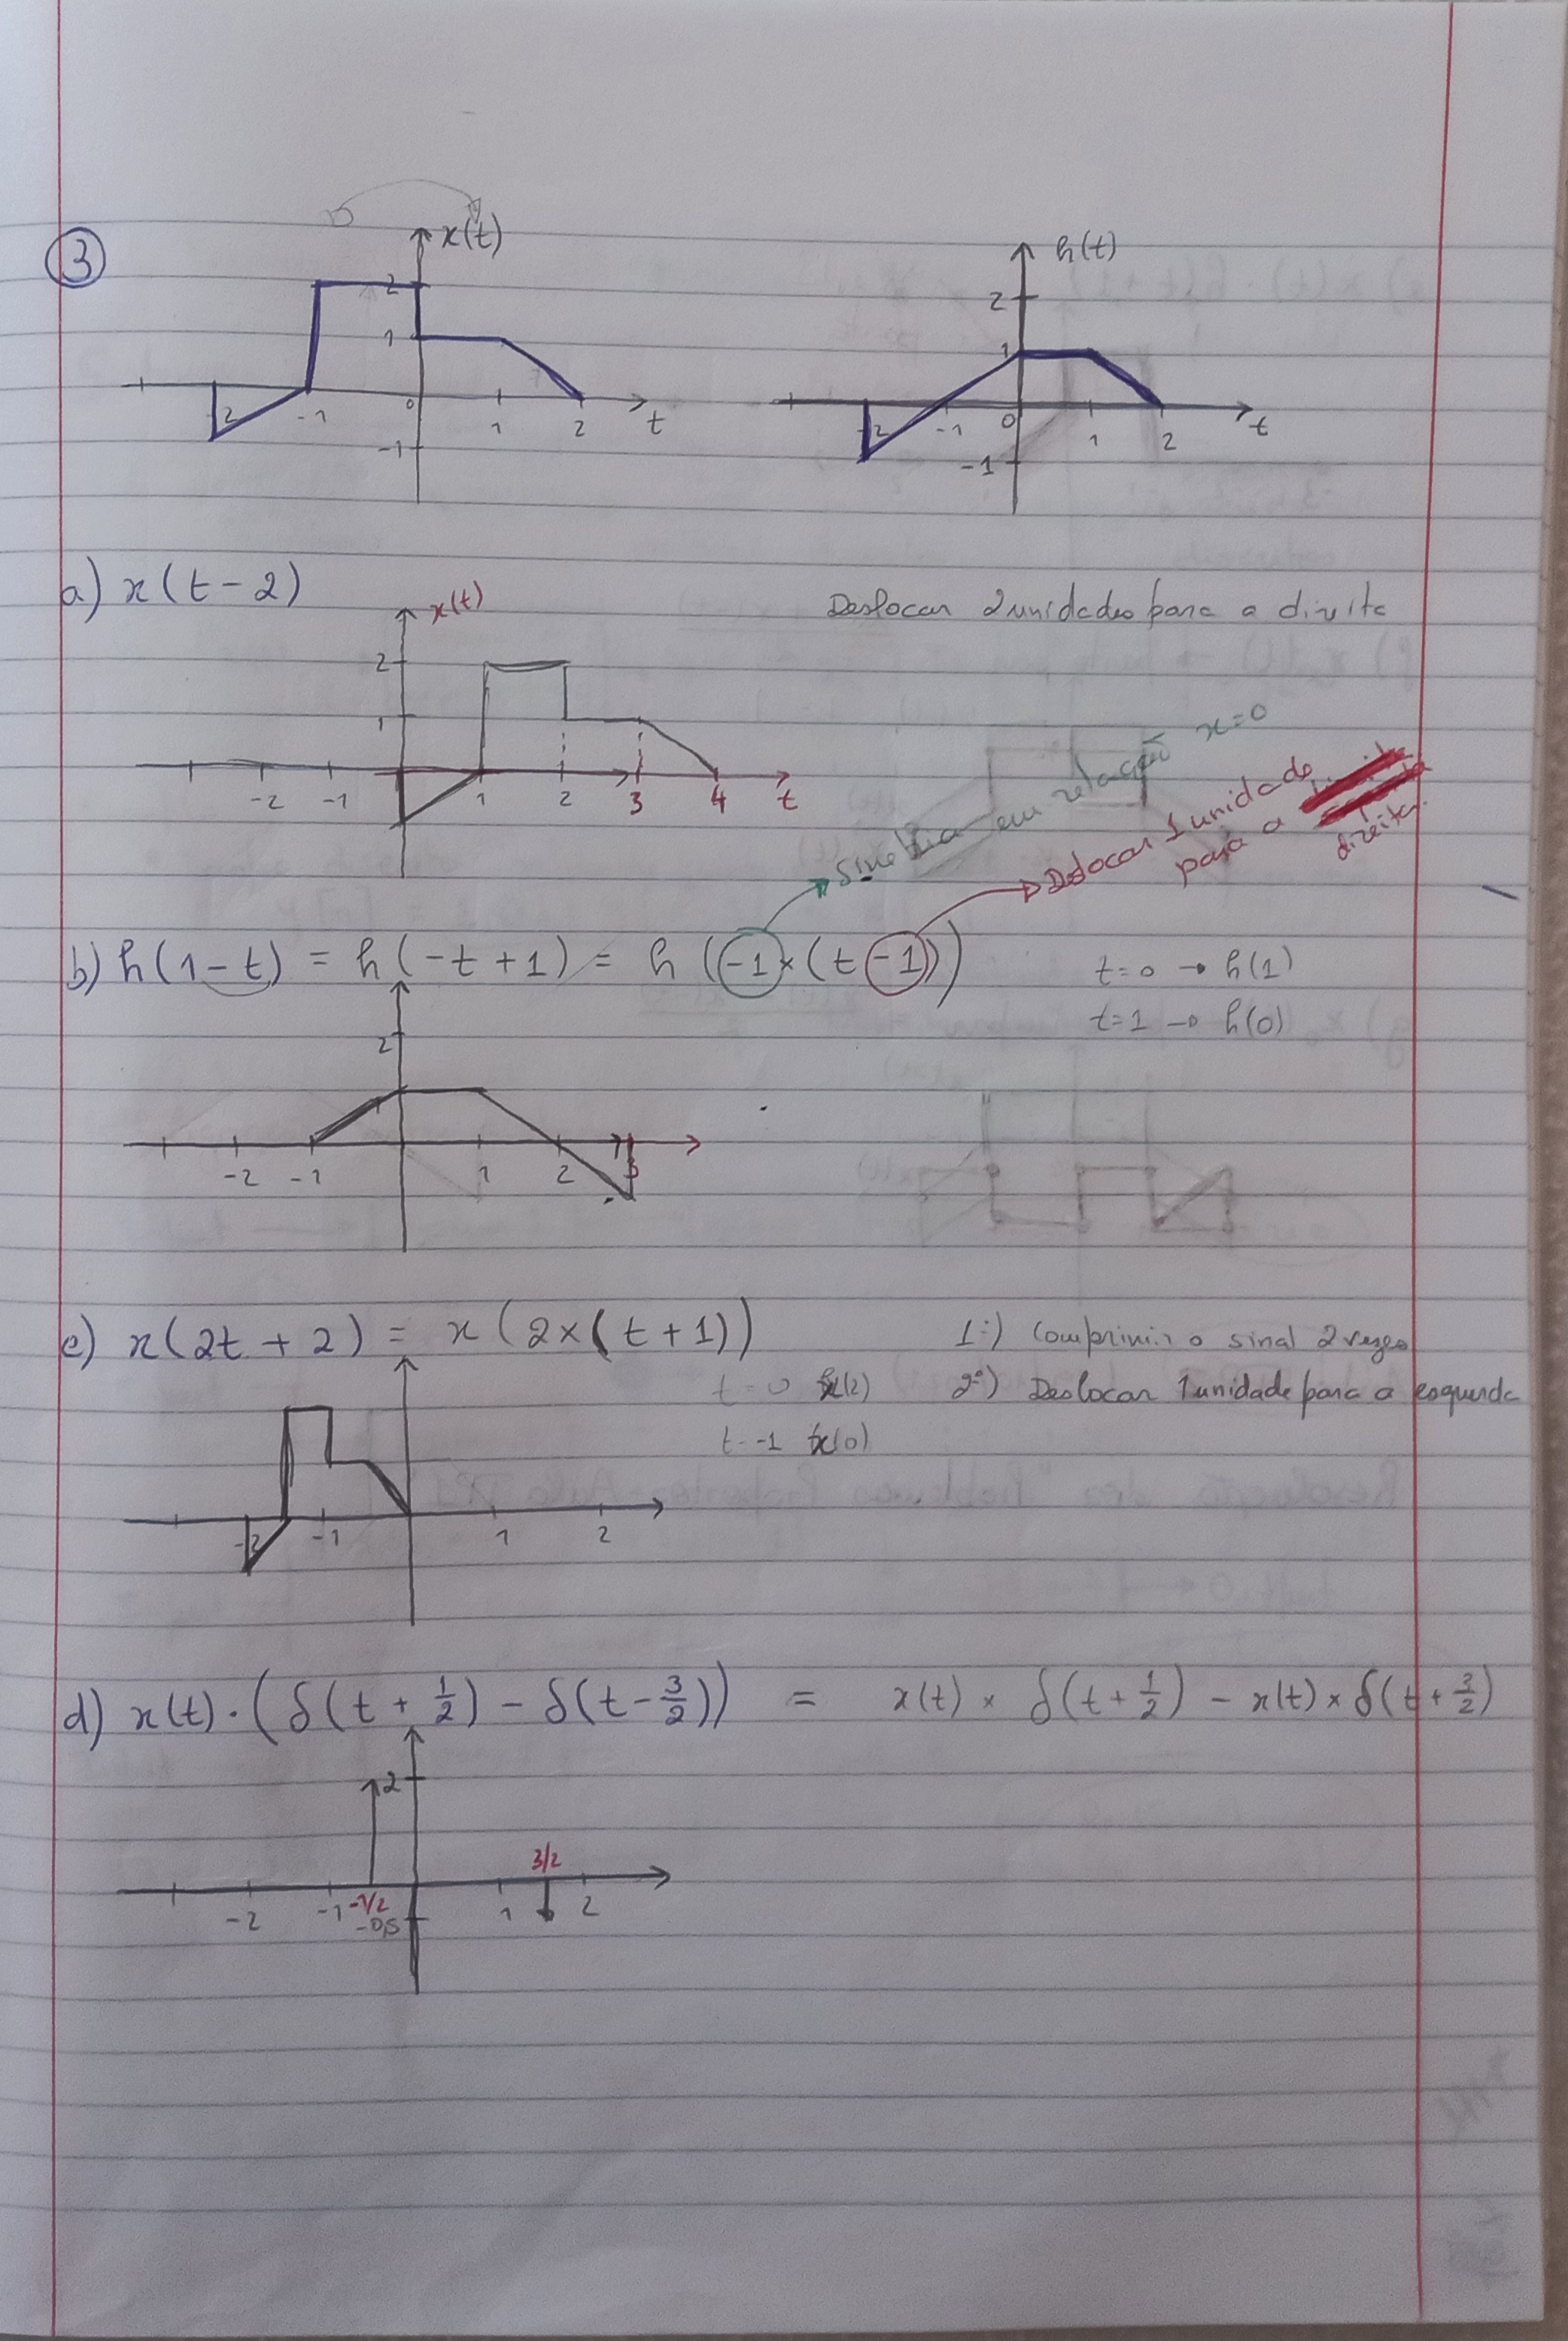 ③
x(t)
2
1
-2 -1 0 1 2 t
-1
h(t)
2
1
-2 -1 0 1 2 t
-1
a) x(t-2)
Deslocar 2 unidades para a direita
x(t)
2
1
-2 -1 1 2 3 4 t
Simetria em relação x=0
Deslocar 1 unidade
para a
direita
b) h(1-t) = h(-t+1) = h(-1×(t-1))
t=0 → h(1)
t=1 → h(0)
2
-2 -1 1 2 3
c) x(2t+2) = x(2×(t+1))
t=0 x(2)
t=-1 x(0)
1º) Comprimir o sinal 2 vezes
2º) Deslocar 1 unidade para a esquerda
-2 -1 1 2
d) x(t)·(δ(t+1/2) - δ(t-3/2)) = x(t) × δ(t+1/2) - x(t) × δ(t+3/2)
2
3/2
-2 -1 -1/2 1 2
-0,5